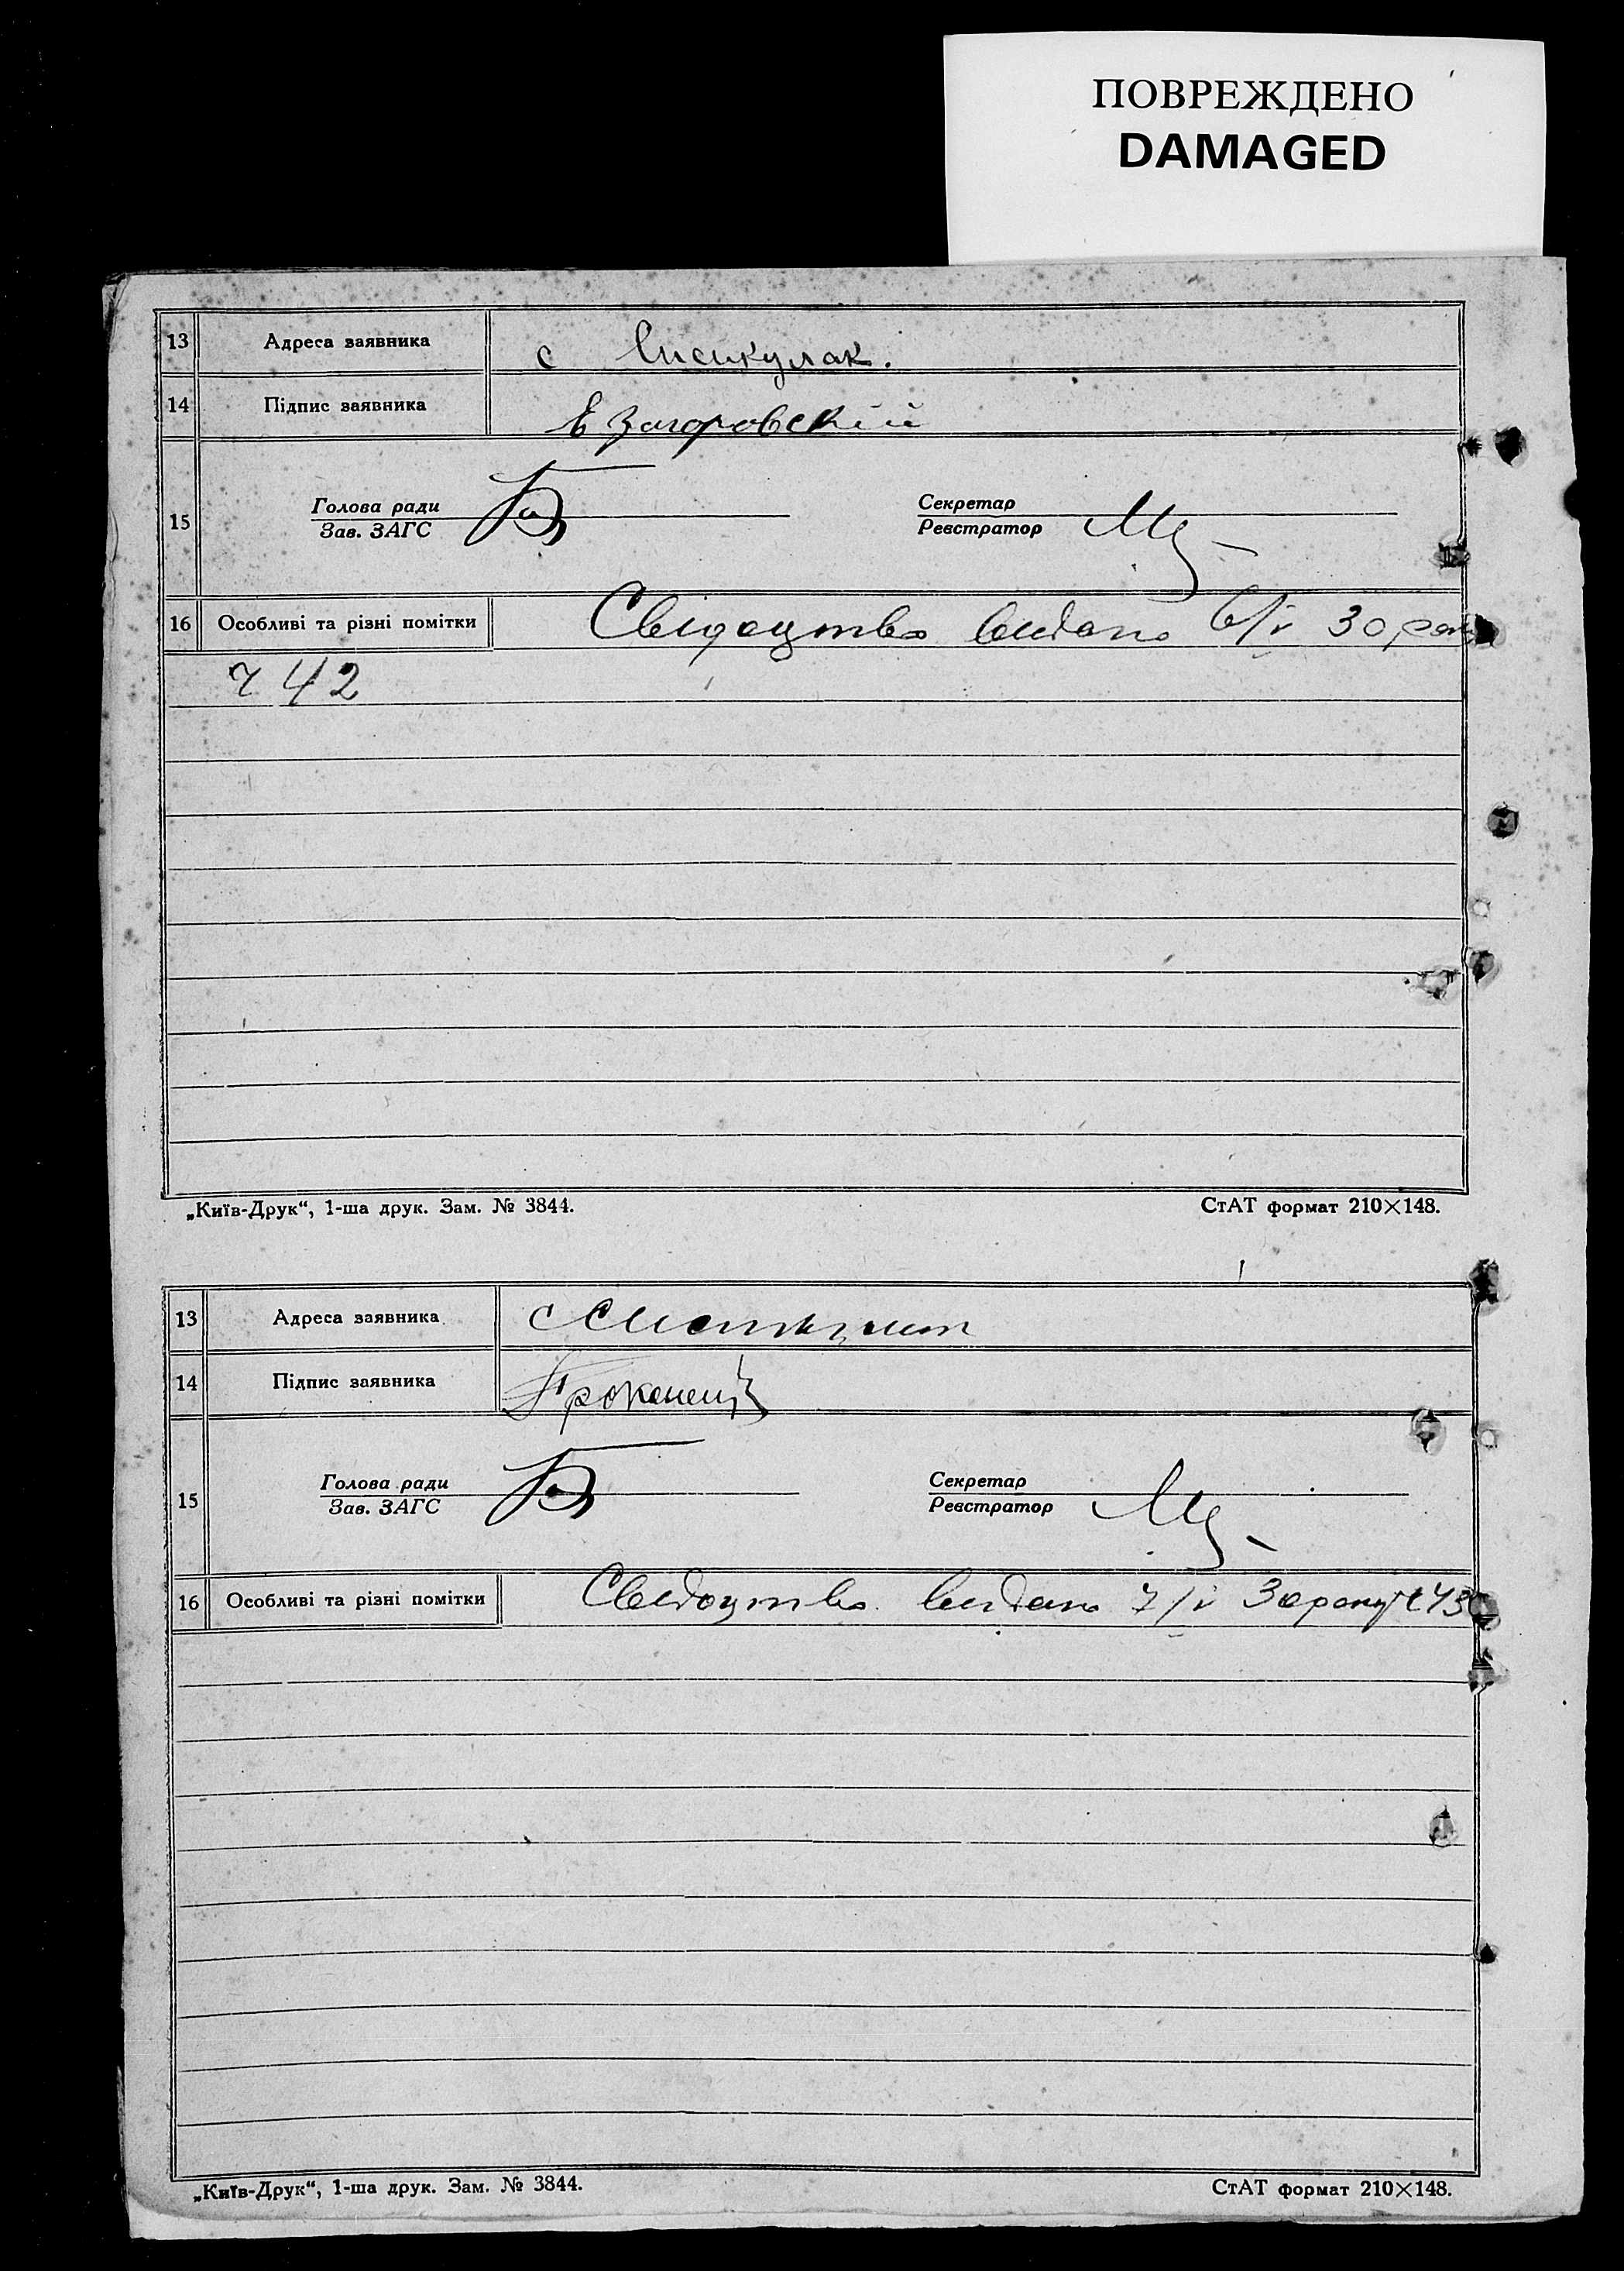 ПОВРЕЖДЕНО
DAMAGED
13 Адреса заявника с
14 Підпис заявника Е Загоровский
Голова ради Секретар
15 Зав. ЗАГС Реєстратор
16 Особливі та різні помітки Свідоцтво видано 6/V 30 року
ч 42
„Київ-Друк“, 1-ша друк. Зам. № 3844. СтАТ формат 210×148.
13 Адреса заявника с
14 Підпис заявника
Голова ради Секретар
15 Зав. ЗАГС Реєстратор
16 Особливі та різні помітки Свидоцтво видано 7/V 30 року ч 43
„Київ-Друк“, 1-ша друк. Зам. № 3844. СтАТ формат 210×148.